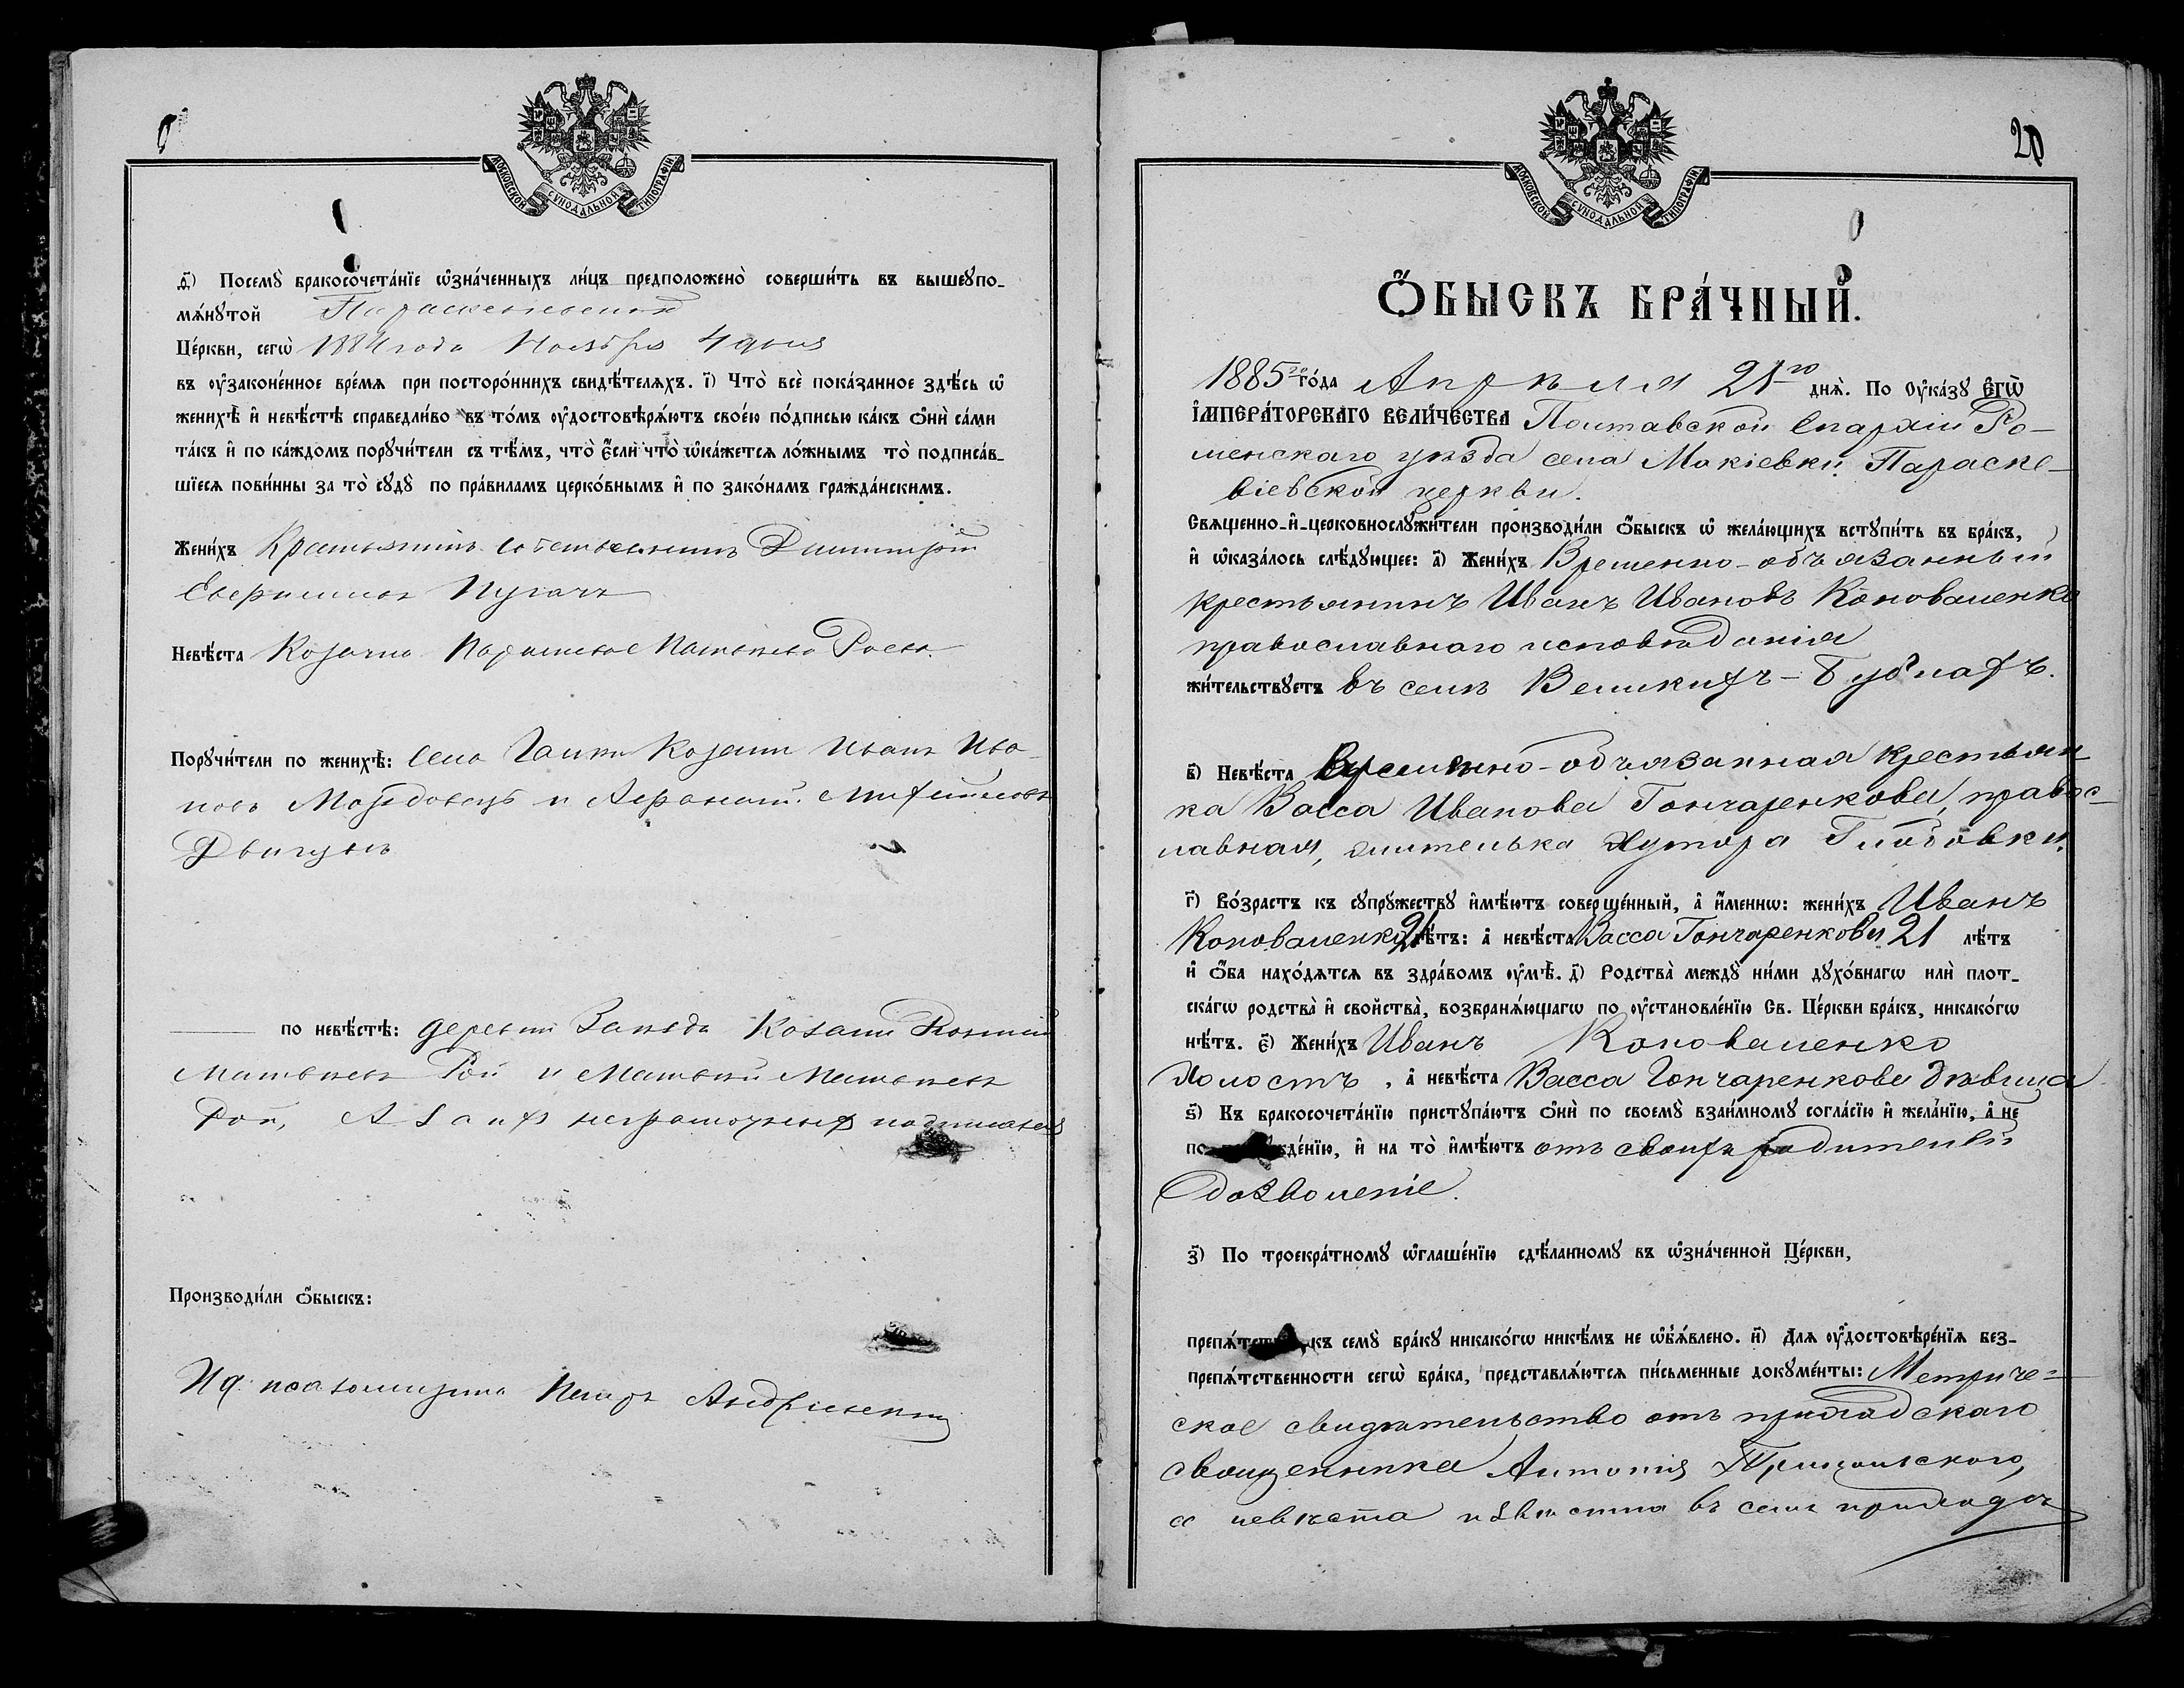 МОСКОВСКОЙ СУНОДАЛЬНОЙ ТИПОГРАФІИ
д҃) Посемꙋ̀ бракосочета́нїе ѡ҆зна́ченныхъ ли́цъ предположено̀ соверши́ть въ вышеꙋпо-
мѧ́нꙋтой Параскевіевской
Це́ркви, сегѡ̀ 1884 года Ноября 4 дня
въ ᲂу҆законе́нное вре́мѧ при посторо́ннихъ свидѣ́телѧхъ. і҃) Что̀ всѐ пока́занное здѣ́сь ѡ҆
женихѣ̀ и҆ невѣ́стѣ справедли́во въ то́мъ ᲂу҆достовѣрѧ́ютъ свое́ю по́дписью ка́къ ѻ҆нѝ са́ми
та́къ и҆ по ка́ждомъ порꙋчи́тели съ тѣ́мъ, что̀ є҆́сли что̀ ѡ҆ка́жетсѧ ло́жнымъ то̀ подписа́в-
шїесѧ пови́нны за то̀ сꙋдꙋ̀ по пра́виламъ церко́внымъ и҆ по зако́намъ гражда́нскимъ.
Жени́хъ Крестьянинъ собственникъ Димитрій
Пугачъ
Невѣ́ста Козачка Параскева Матвѣева Роева.
Порꙋчи́тели по женихѣ̀: села Козаки Иванъ Ива-
новъ и Афанасій
Двигунъ
по невѣ́стѣ: деревни Козаки
Матвѣевъ Рой и Матвѣй Матвѣевъ
Рой, А за ихъ неграмотныхъ подписался
Производи́ли ѻ҆́быскъ:
Ид. псаломщика Петръ Андріевскій
20
МОСКОВСКОЙ СУНОДАЛЬНОЙ ТИПОГРАФІИ
Ѻ҆́БЫСКЪ БРА́ЧНЫЙ.
1885го го́да Апрѣля 21го днѧ̀. По Оу҆ка́зꙋ Є҆ГѠ̀
І҆МПЕРА́ТОРСКАГО ВЕЛИ́ЧЕСТВА Полтавской Епархіи Ро-
менскаго уѣзда села Макіевки Параске-
віевской церкви.
Свѧщенно-и҆-церковнослꙋжи́тели производи́ли ѻ҆́быскъ ѡ҆ жела́ющихъ встꙋпи́ть въ бра́къ,
и҆ ѡ҆каза́лось слѣ́дꙋющее: а҃) Жени́хъ Временно-объязанный
крестьянинъ Иванъ Ивановъ Коноваленко
православнаго исповѣданія
жи́тельствꙋетъ въ селѣ Великихъ-Бубнахъ.
в҃) Невѣ́ста Временно-объязанная крестьян-
ка Васса Иванова Гончаренкова, правос-
лавная, жителька хутора Глобовки.
г҃) Во́зрастъ къ сꙋпрꙋ́жествꙋ и҆мѣ́ютъ соверше́нный, а҆ и҆́меннѡ: жени́хъ Иванъ
Коноваленко 21 лѣ́тъ: а҆ невѣ́ста Васса Гончаренкова 21 лѣ́тъ
и҆ ѻ҆́ба нахо́дѧтсѧ въ здра́вомъ ᲂу҆мѣ̀. д҃) Родства̀ междꙋ̀ ни́ми дꙋхо́внагѡ илѝ плот-
ска́гѡ родства̀ и҆ свойства̀, возбранѧ́ющагѡ по ᲂу҆становле́нїю Св. Це́ркви бра́къ, никако́гѡ
нѣ́тъ. є҃) Жени́хъ Иванъ Коноваленко
холостъ, а҆ невѣ́ста Васса Гончаренкова дѣвица
ѕ҃) Къ бракосочета́нїю пристꙋпа́ютъ ѻ҆нѝ по своемꙋ̀ взаи́мномꙋ согла́сїю и҆ жела́нїю, а҆ не
по жде́нїю, и҆ на то̀ и҆мѣ́ютъ отъ своихъ родителей
дозволеніе.
з҃) По троекра́тномꙋ ѡ҆глаше́нїю сдѣ́ланномꙋ въ ѡ҆зна́ченной Це́ркви,
препѧ́тст къ семꙋ̀ бра́кꙋ никако́гѡ никѣ́мъ не ѡ҆б̾ѧ́влено. и҃) Длѧ ᲂу҆достовѣре́нїѧ без-
препѧ́тственности сегѡ̀ бра́ка, представлѧ́ютсѧ пи́сьменные докꙋме́нты: Метриче-
ское свидѣтельство отъ приходскаго
священника Антонія
а невѣста извѣстна въ семъ приходѣ